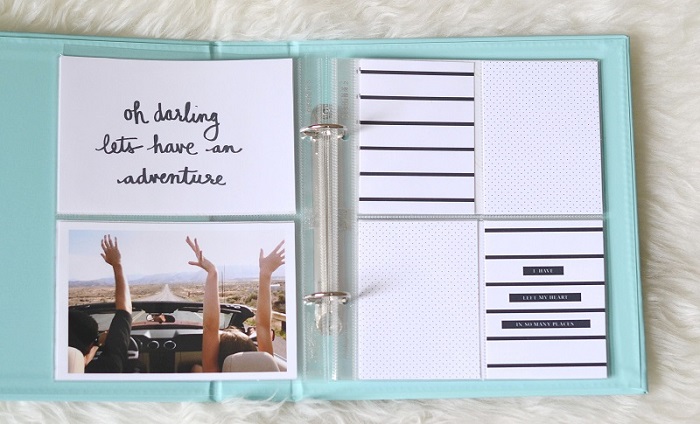 oh darling
lets have an
adventure
I HAVE
LEFT MY HEART
IN SO MANY PLACES